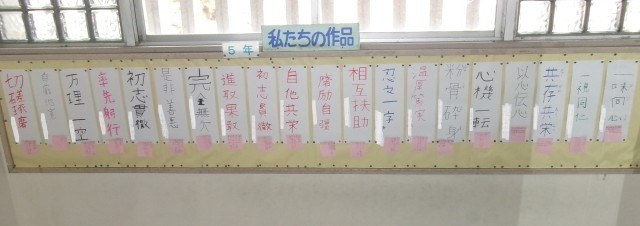 私たちの作品
5年
一味同心
一視同仁
共存共栄
以心伝心
心機一転
粉骨砕身
忍之一字
相互扶助
隠忍自重
自他共栄
初志貫徹
進取果敢
完全無欠
是非善悪
初志貫徹
率先躬行
万理一空
切磋琢磨